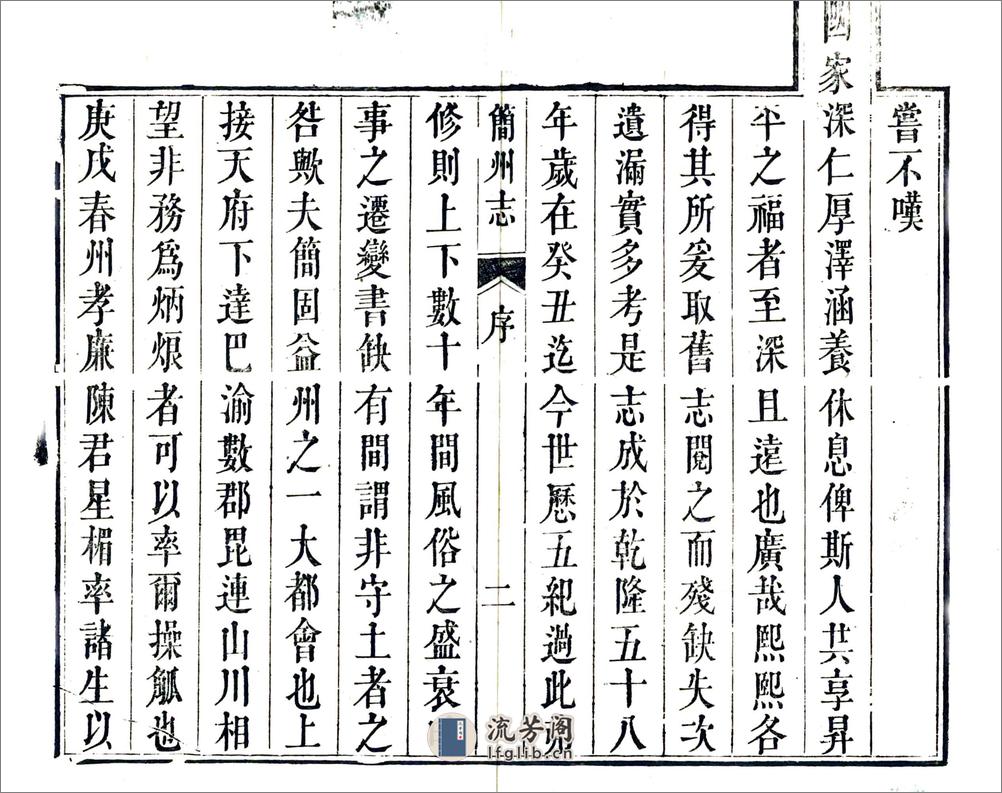 嘗不嘆
國家深仁厚澤涵養休息俾斯人共享昇
平之福者至深且遠也廣哉熙熙各
得其所爰取舊志閱之而殘缺失次
遺漏實多考是志成於乾隆五十八
年歲在癸丑迄今世歷五紀過此弗
簡州志
序
二
修則上下數十年間風俗之盛衰
事之遷變書缺有間謂非守土者之
咎歟夫簡固益州之一大都會也上
接天府下達巴渝數郡毘連山川相
望非務為炳烺者可以率爾操觚也
庚戌春州孝廉陳君星楣率諸生以
流芳阁
lfglib.cn